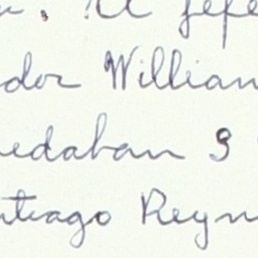 . El jefe
dor William
uedaban 9
ntiago Reyn